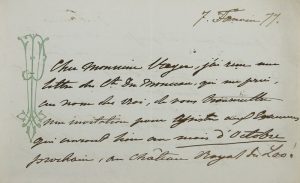 7. Janvier 77.
Cher Monsieur Vraye, je viens une
lettre du Ct. du Monceau, qui me prie,
au nom du Roi, de vous transmettre
une invitation pour assister aux
qui auront lieu au mois d'Octobre
prochain, au Château Royal de